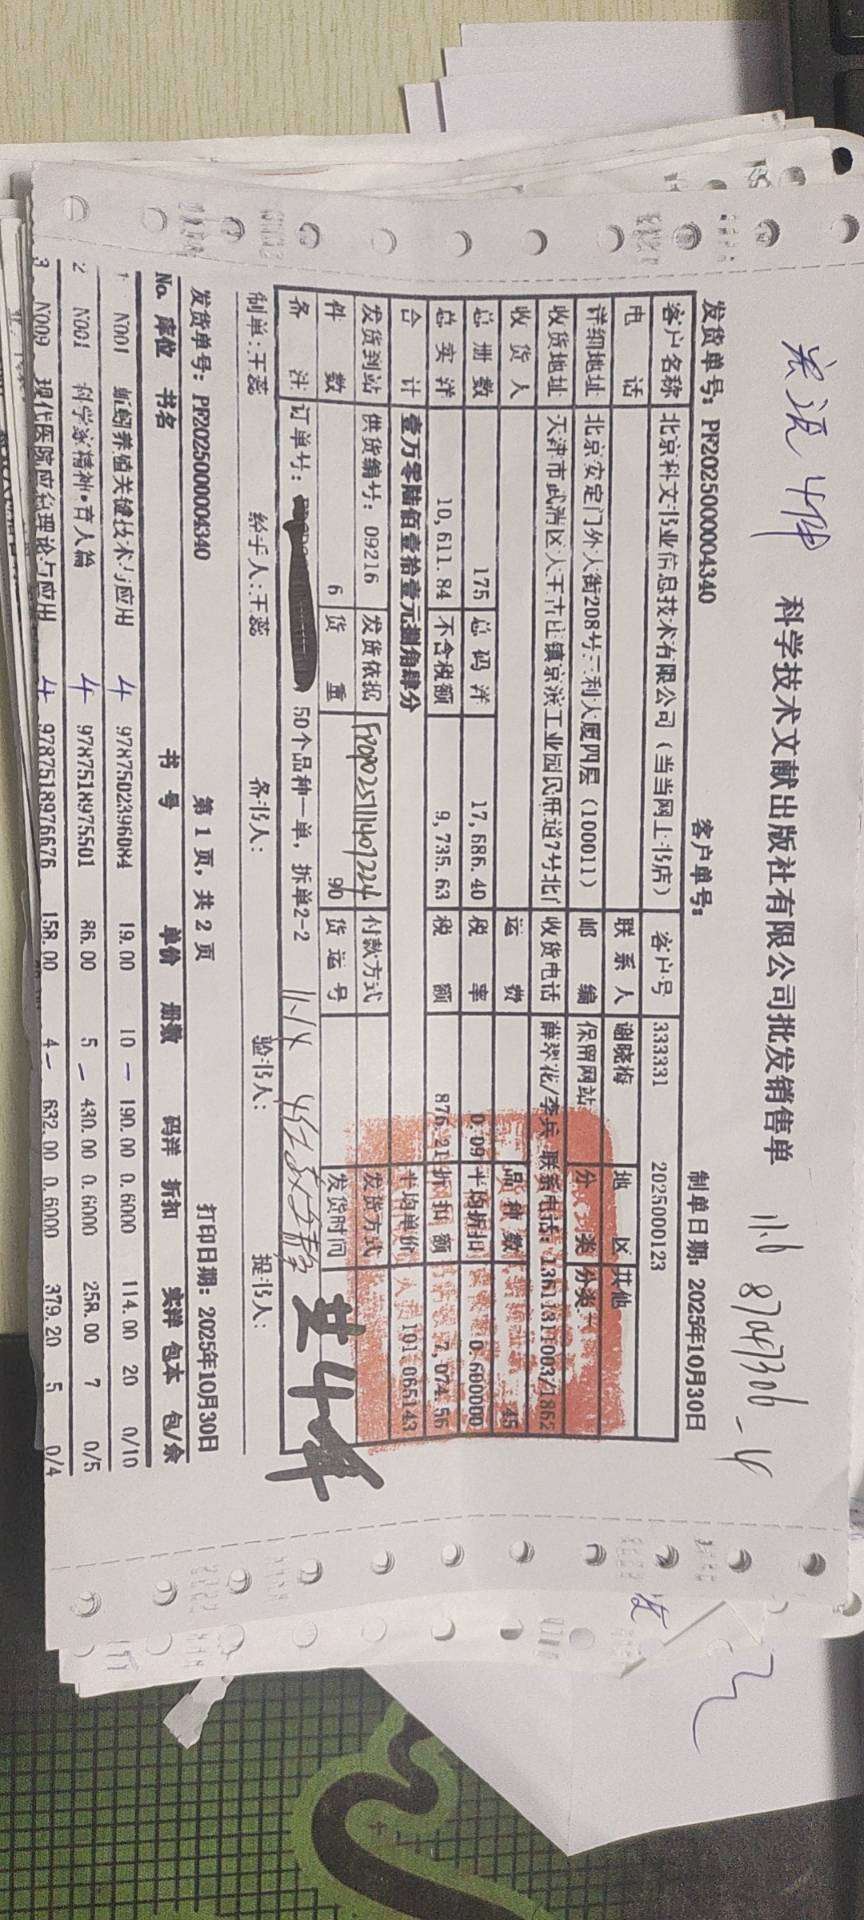 科学技术文献出版社有限公司批发销售单
11.6 87047306-4
发货单号: PF2025000004340 客户单号: 制单日期: 2025年10月30日
客户名称 北京科文书业信息技术有限公司(当当网上书店) 客户号 333331 2025000123
电话 联系人 谢晓梅 地区 其他
详细地址 北京安定门外大街208号三利大厦四层(100011) 邮编 保留网站 分类 分类一
收货地址 天津市武清区大王古庄镇京滨工业园民旺道7号北门 收货电话 薛翠花/李兵 联系电话: 13611311003/1862
收货人 运费 品种数 45
总册数 175 总码洋 17,686.40 税率 0.09 平均折扣 0.600000
总实洋 10,611.84 不含税额 9,735.63 税额 876.21 折扣额 7,074.56
合计 壹万零陆佰壹拾壹元捌角肆分 平均单价 101.065143
发货到站 供货编号: 09216 发货依据 付款方式 发货方式
件数 6 货重 90 货运号 发货时间
备注 订单号: 50个品种一单, 拆单2-2 11.14
制单:王蕊 经手人:王蕊 备书人: 验书人: 提书人:
发货单号: PF2025000004340 第 1 页, 共 2 页 打印日期: 2025年10月30日
No. 库位 书名 书号 单价 册数 码洋 折扣 实洋 包本 包/余
1 N001 蚯蚓养殖关键技术与应用 4 9787502396084 19.00 10 190.00 0.6000 114.00 20 0/10
2 N001 科学家精神·育人篇 4 9787518975501 86.00 5 430.00 0.6000 258.00 7 0/5
3 N009 现代医院应急理论与应用 4 9787518976676 158.00 4 632.00 0.6000 379.20 5 0/4